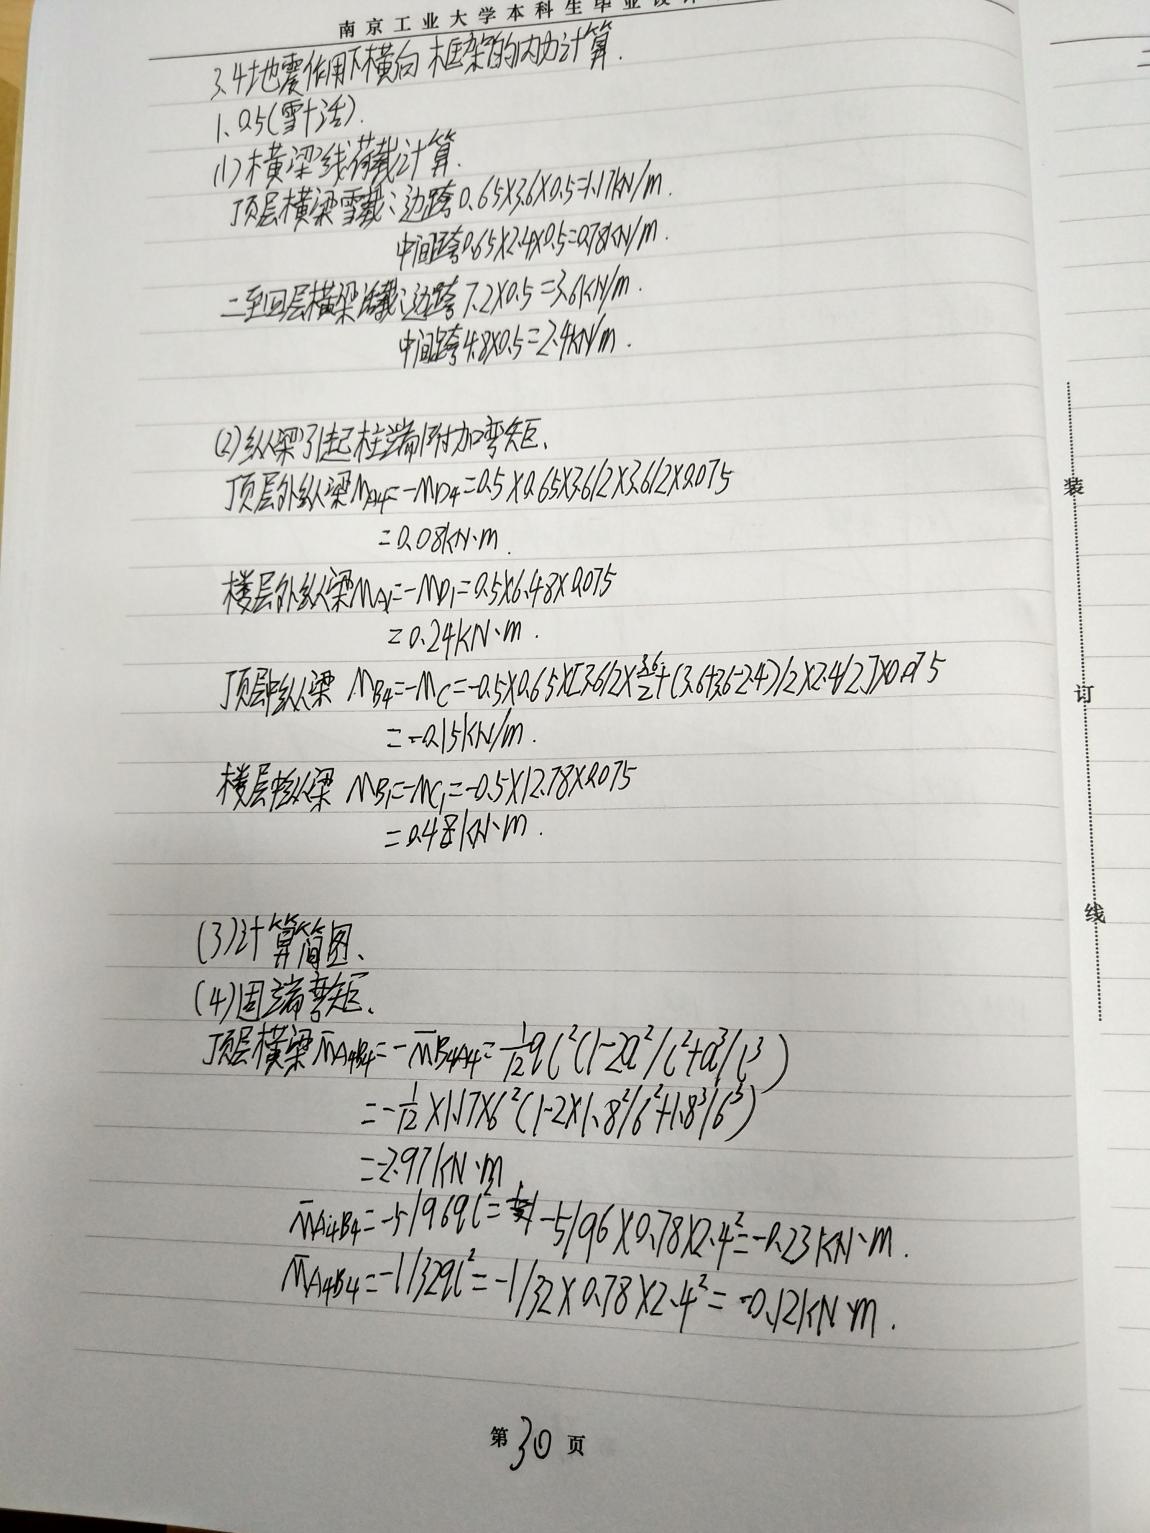 南京工业大学本科生毕业设计
3.4地震作用下横向框架的内力计算.
1、0.5(雪+活).
(1)横梁线荷载计算.
顶层横梁雪载:边跨0.65×3.6×0.5=1.17kN/m.
中间跨0.65×2.4×0.5=0.78kN/m.
二至四层横梁活载:边跨7.2×0.5=3.6kN/m.
中间跨4.8×0.5=2.4kN/m.
(2)纵梁引起柱端附加弯矩、
顶层外纵梁MA4=-MD4=0.5×0.65×3.6/2×3.6/2×0.075
=0.08kN·m.
楼层外纵梁MA1=-MD1=0.5×6.48×0.075
=0.24kN·m.
顶层中纵梁 MB4=-MC=-0.5×0.65×[3.6/2×3.6/2+(3.6+3.6-2.4)/2×2.4/2]×0.075
=-0.15kN/m.
楼层中纵梁 MB1=-MC1=-0.5×12.78×0.075
=0.48kN·m.
(3)计算简图、
(4)固端弯矩、
顶层横梁M̄A4B4=-M̄B4A4=-1/12ql²(1-2a²/l²+a³/l³)
=-1/12×1.17×6²(1-2×1.8²/6²+1.8³/6³)
=-2.97kN·m
M̄A4B4=-5/96ql²=-5/96×0.78×2.4²=-0.23kN·m.
M̄A4B4=-1/32ql²=-1/32×0.78×2.4²=-0.12kN·m.
第30页
装
订
线